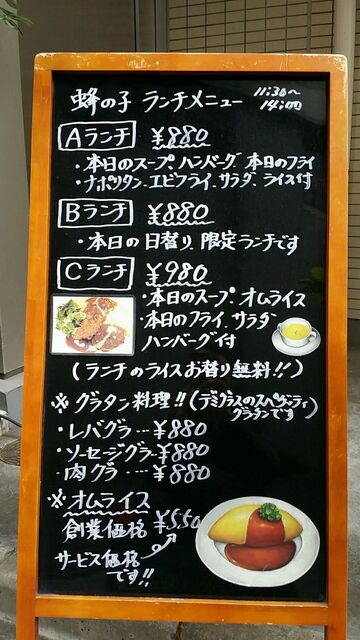 蜂の子 ランチメニュー 11:30〜
14:00
Aランチ ¥880
・本日のスープ、ハンバーグ、本日のフライ
・ナポリタン、エビフライ、サラダ、ライス付
Bランチ ¥880
・本日の日替り、限定ランチです
Cランチ ¥980
・本日のスープ、オムライス
・本日のフライ、サラダ
ハンバーグ付
(ランチのライスお替り無料!!)
※ グラタン料理!! (デミグラスのスパゲッティ
グラタンです)
・レバグラ…¥880
・ソーセージグラ…¥880
・肉グラ…¥880
※ オムライス
創業価格 ¥550
サービス価格
です!!